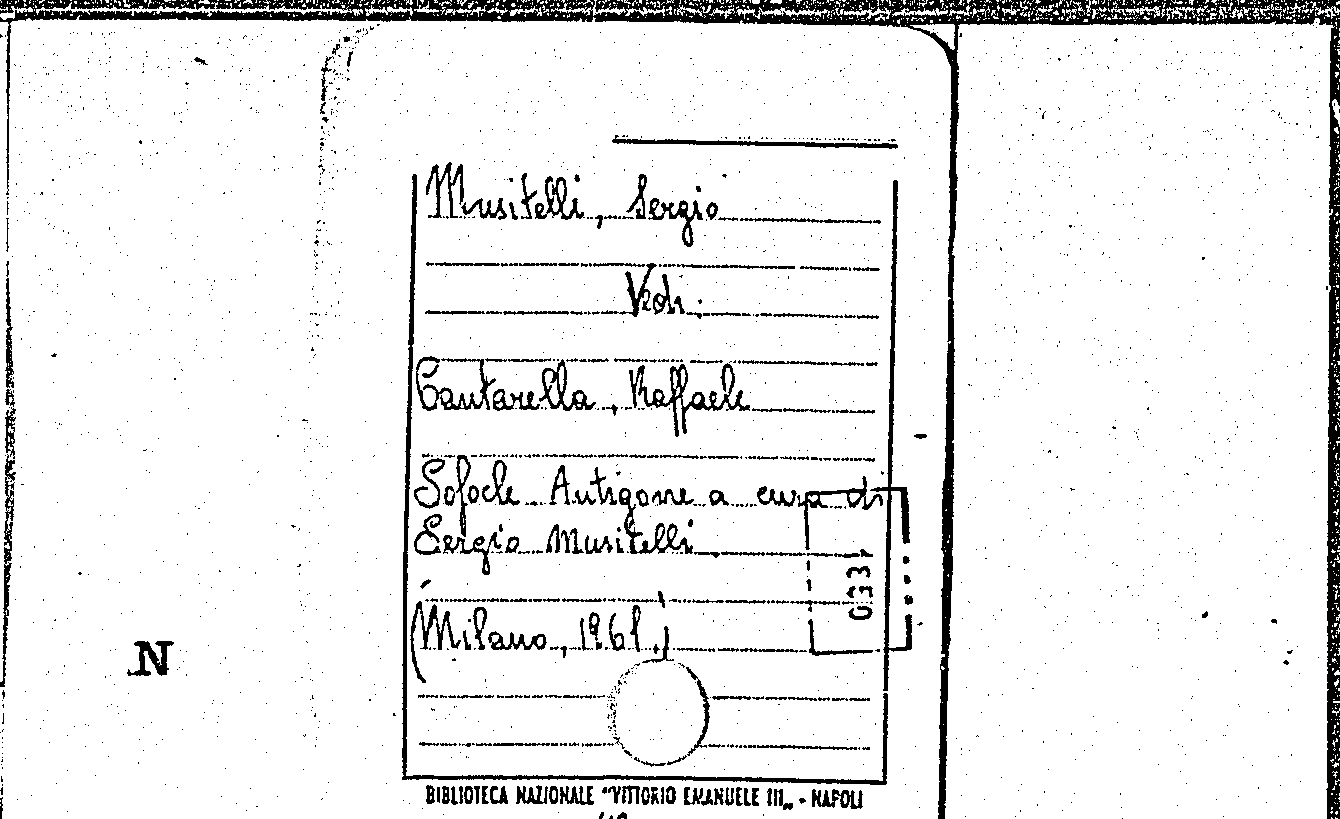 Musitelli, Sergio
Vedi:
Cantarella, Raffaele
Sofocle. Antigone a cura di
Sergio Musitelli.
(Milano, 1961.)
033
N
BIBLIOTECA NAZIONALE "VITTORIO EMANUELE III„ - NAPOLI